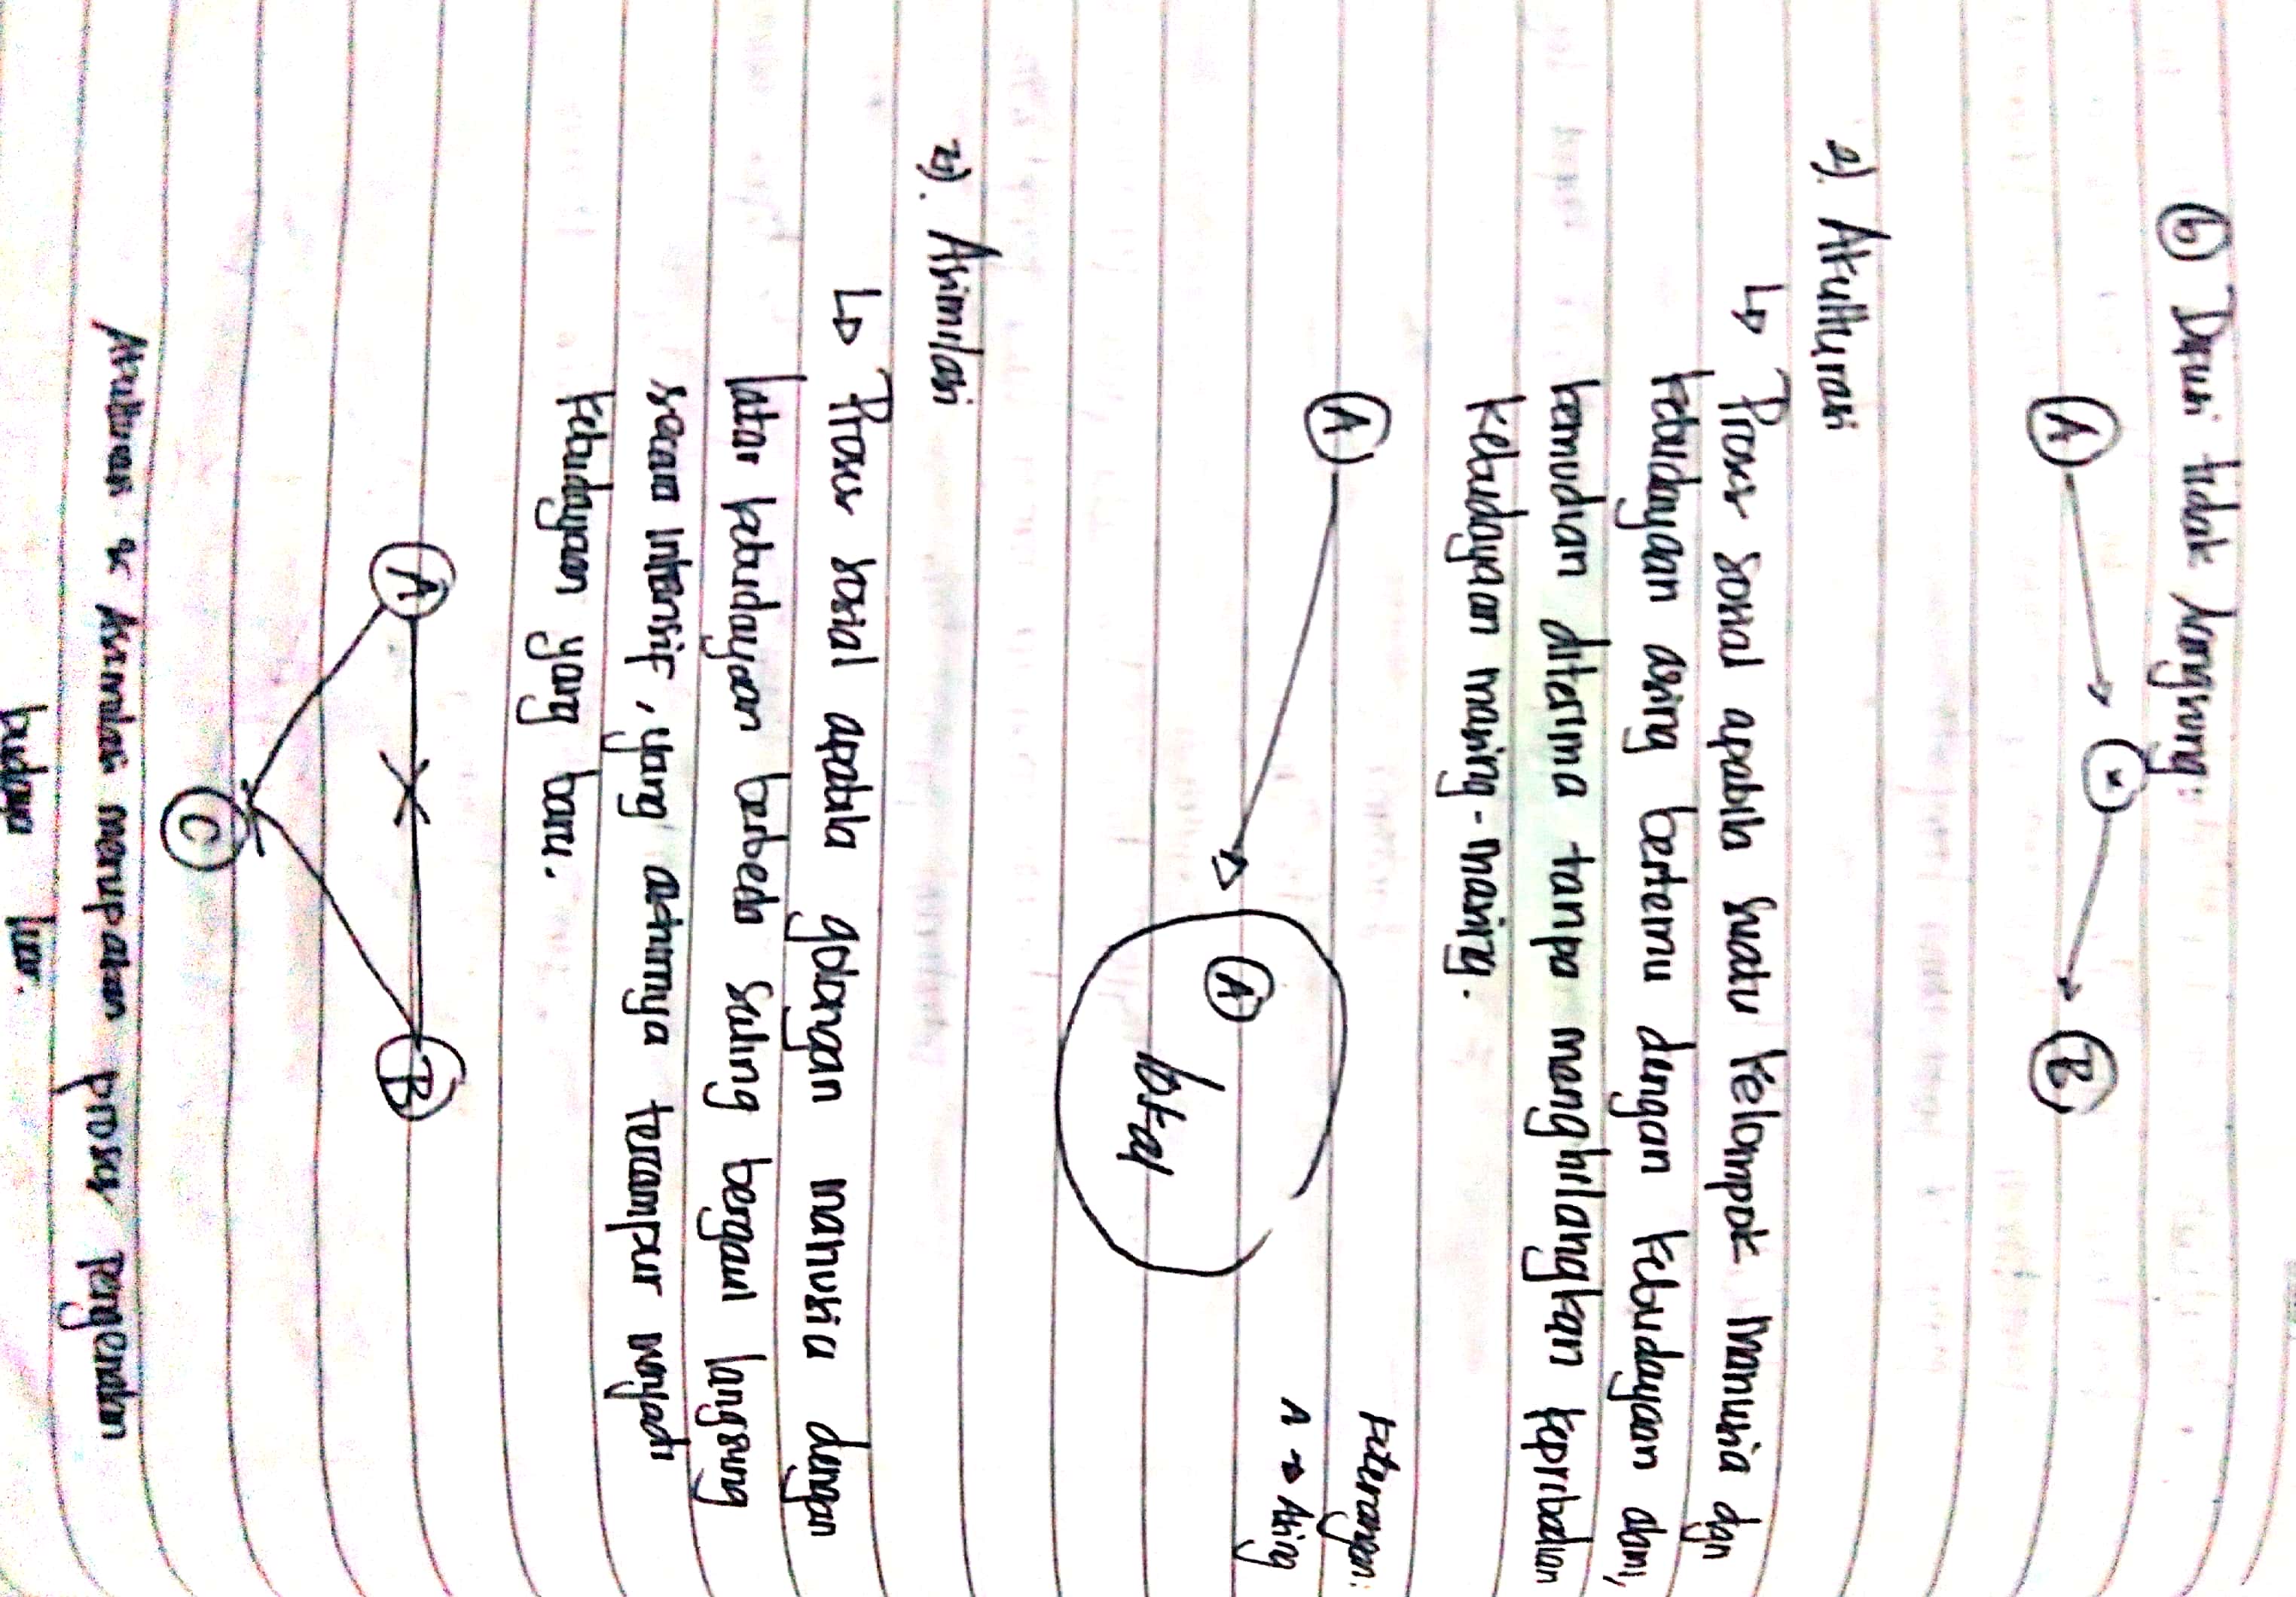 b Difusi tidak langsung.
A x B
2). Akulturasi
↳ Proses sosial apabila suatu kelompok manusia dgn
kebudayaan asing bertemu dengan kebudayaan dani,
kemudian diterima tanpa menghilangkan kepribadian
kebudayaan masing-masing.
Keterangan:
A → Asing
A
A
3). Asimilasi
↳ Proses sosial apabila golongan manusia dengan
latar kebudayaan berbeda saling bergaul langsung
secara intensif, yang akhirnya tercampur menjadi
kebudayaan yang baru.
A B
C
Akulturasi & Asimilasi merupakan proses pergerakan
budaya luar.